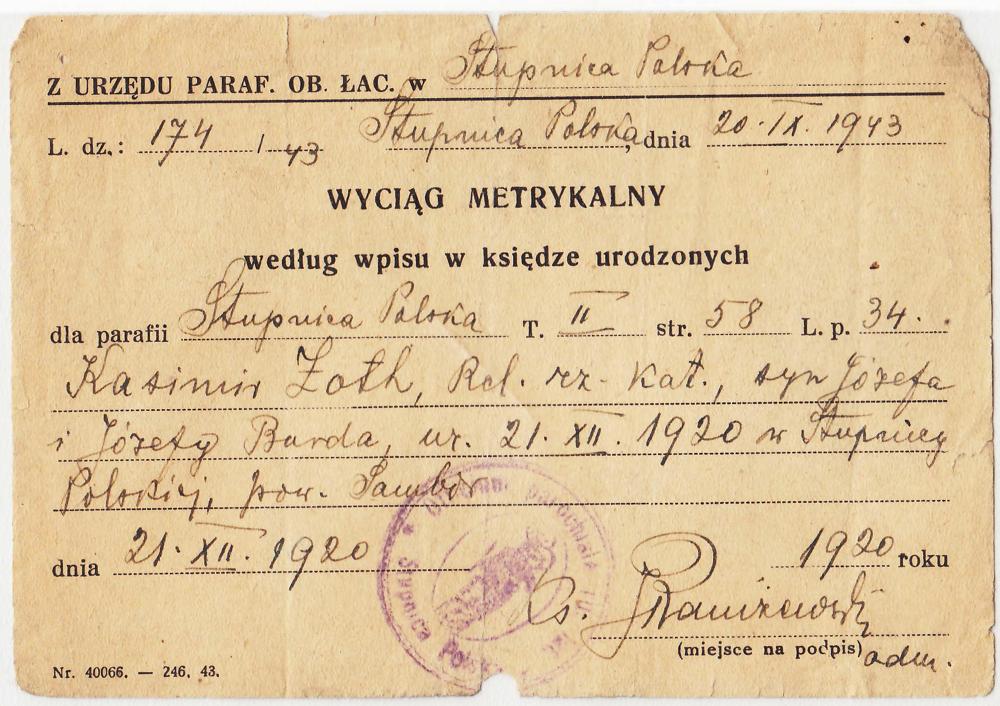 Z URZĘDU PARAF. OB. ŁAC. w Stupnica Polska
L. dz.: 174 / 43 Stupnica Polska, dnia 20. IX. 1943
WYCIĄG METRYKALNY
według wpisu w księdze urodzonych
dla parafii Stupnica Polska T. II str. 58 L. p. 34.
Kasimir Zoth, Rel. rz-kat., syn Józefa
i Józefy Burda, ur. 21. XII. 1920 w Stupnicy
Polskiej, pow. Sambor
dnia 21. XII. 1920 1920 roku
Ks.
(miejsce na podpis) adm.
Nr. 40066. — 246. 43.